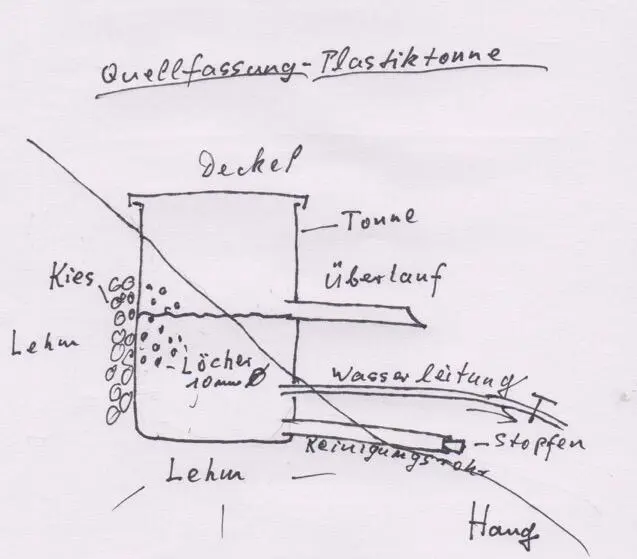 Quellfassung-Plastiktonne
Deckel
Tonne
Kies
Überlauf
Lehm
Löcher
10mm Ø
Wasserleitung
Stopfen
Reinigungsrohr
Lehm
Hang